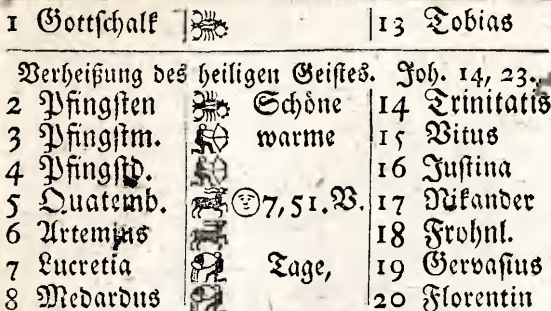 1 Gottschalk 13 Tobias
Verheißung des heiligen Geistes. Joh. 14, 23.
2 Pfingsten Schöne 14 Trinitatis
3 Pfingstm. warme 15 Vitus
4 Pfingstd. 16 Justina
5 Quatemb. 7, 51. V. 17 Nikander
6 Artemius 18 Frohnl.
7 Lucretia Tage, 19 Gervasius
8 Medardus 20 Florentin